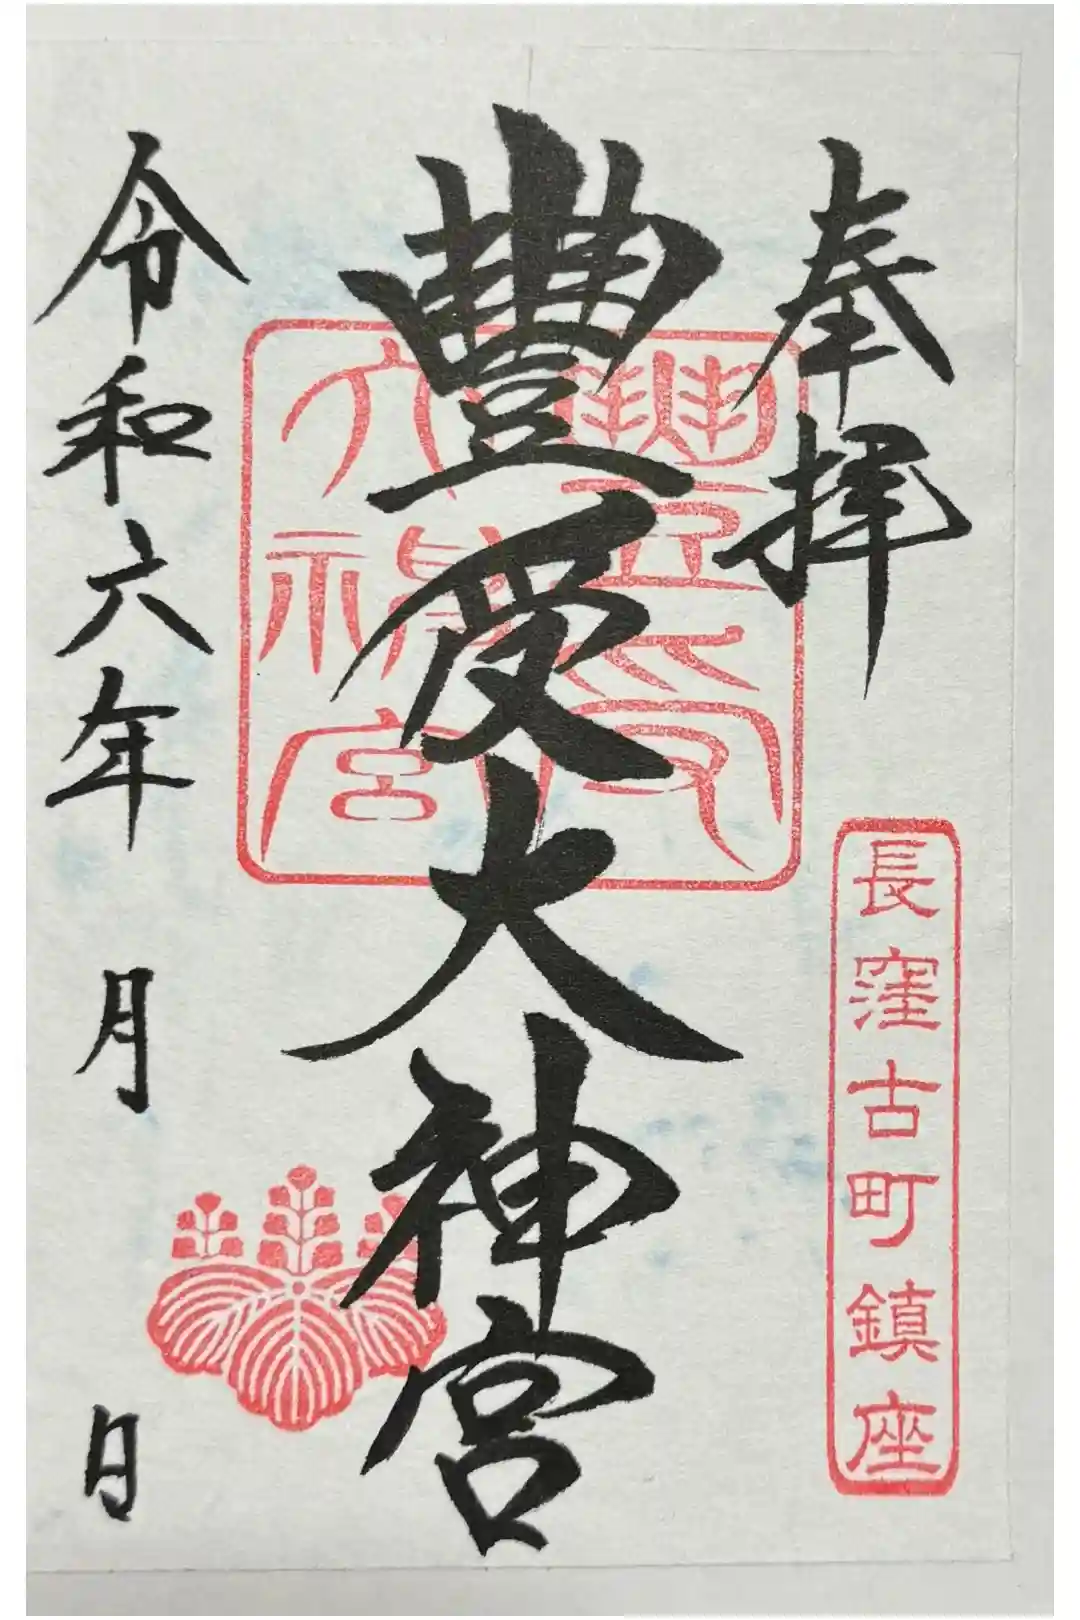 奉拝
長窪古町鎮座
豐受大神宮
豐受大神宮
令和六年 月 日